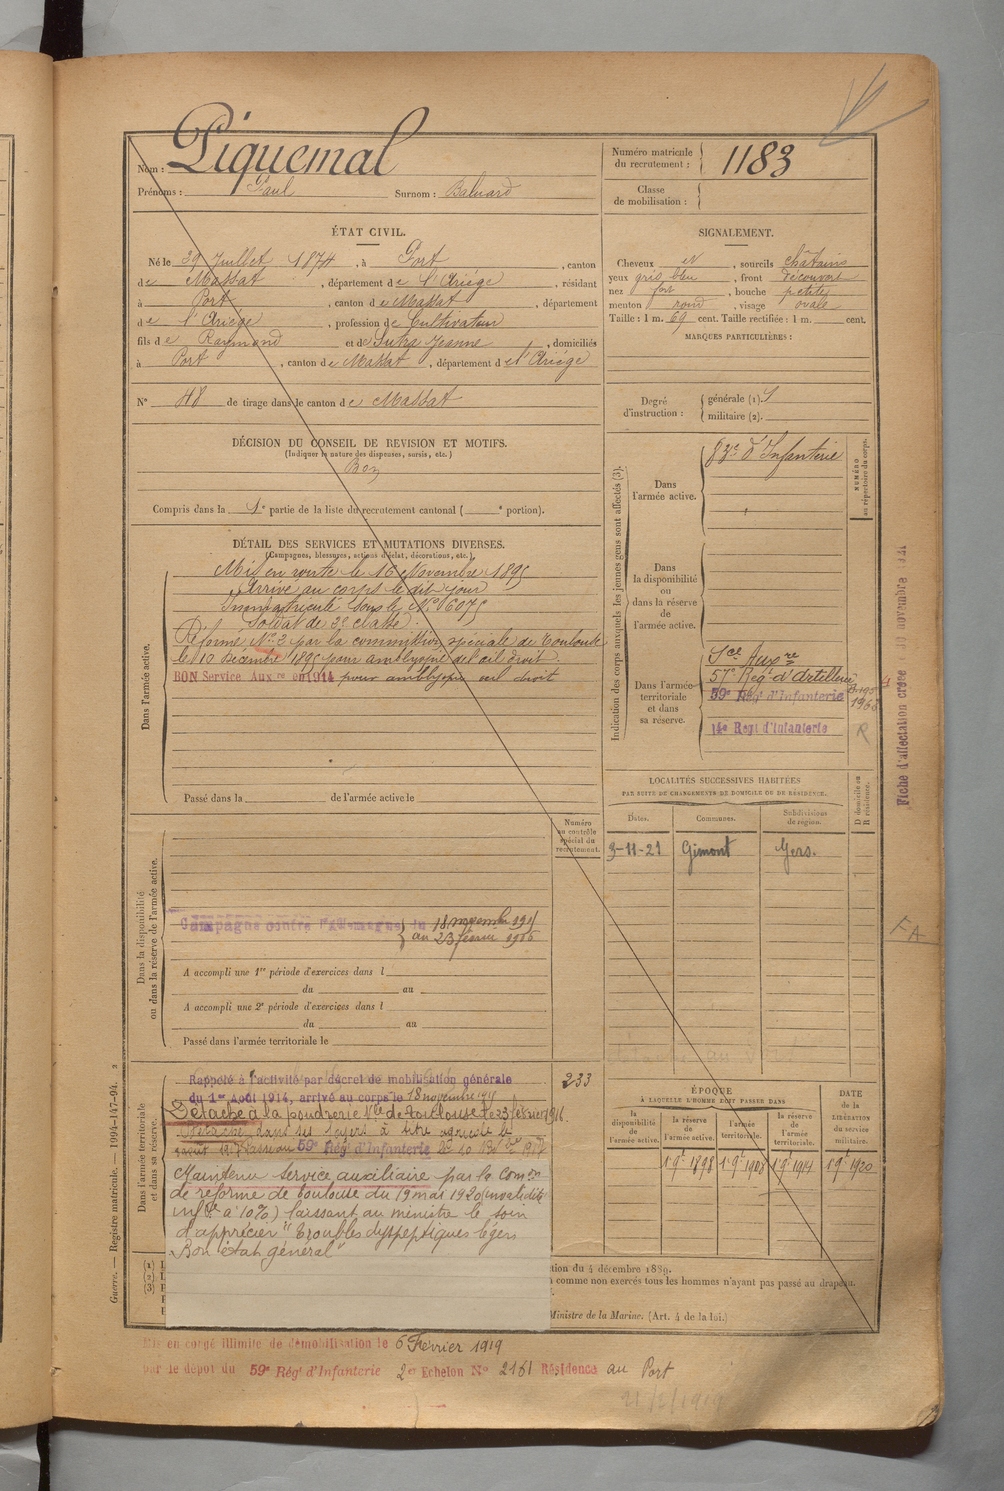 Nom : Piquemal
Prénoms : Paul Surnom : Baluard
Numéro matricule du recrutement : 1183
Classe de mobilisation :
ÉTAT CIVIL.
Né le 29 Juillet 1874, à Port, canton
de Massat, département de l'Ariège, résidant
à Port, canton de Massat, département
de l'Ariège, profession de Cultivateur
fils de Raymond et de Sutra Jeanne, domiciliés
à Port, canton de Massat, département de l'Ariège
N° 48 de tirage dans le canton de Massat
SIGNALEMENT.
Cheveux et, sourcils châtains
yeux gris bleu, front découvert
nez fort, bouche petite
menton rond, visage ovale
Taille : 1 m. 69 cent. Taille rectifiée : 1 m. cent.
MARQUES PARTICULIÈRES :
Degré d'instruction : générale (1).
militaire (2).
DÉCISION DU CONSEIL DE REVISION ET MOTIFS.
(Indiquer la nature des dispenses, sursis, etc.)
Bon
Compris dans la 1e partie de la liste du recrutement cantonal ( e portion).
DÉTAIL DES SERVICES ET MUTATIONS DIVERSES.
(Campagnes, blessures, actions d'éclat, décorations, etc.)
Dans l'armée active.
Mis en route le 16 Novembre 1895
Arrivé au corps le dit jour
Immatriculé sous le N° 6075
Soldat de 2e classe.
Réformé N° 2 par la commission spéciale de Toulouse
le 10 décembre 1895 pour amblyopie de l'œil droit.
BON Service Aux re en 1914 pour amblyopie œil droit
Passé dans la de l'armée active le
Indication des corps auxquels les jeunes gens sont affectés (3).
Dans l'armée active.
83e d'Infanterie
NUMÉRO au répertoire du corps.
Dans la disponibilité ou dans la réserve de l'armée active.
Dans l'armée territoriale et dans sa réserve.
Sce Aux re
57e Rég. d'Artillerie
59e Rég' d'Infanterie
14e Regt d'Infanterie
R
Fiche d'affectation créée
LOCALITÉS SUCCESSIVES HABITÉES
PAR SUITE DE CHANGEMENTS DE DOMICILE OU DE RÉSIDENCE.
Dates. Communes. Subdivisions de région. D domicile ou R résidence.
3-11-21 Gimont Gers.
Numéro au contrôle spécial du recrutement.
Dans la disponibilité ou dans la réserve de l'armée active.
Campagne contre l'Allemagne du 18 novembre 1915
au 23 février 1916
A accompli une 1re période d'exercices dans l
du au
A accompli une 2e période d'exercices dans l
du au
Passé dans l'armée territoriale le
FA
Dans l'armée territoriale et dans sa réserve.
Rappelé à l'activité par décret de mobilisation générale
du 1er Août 1914, arrivé au corps le 18 novembre
233
Détaché à la poudrerie Nle de Toulouse le 23 février 1916.
Détaché dans ses foyers à titre agricole le
Passé au 59e Rég' d'Infanterie
Maintenu service auxiliaire par la Comon
de réforme de Toulouse du 19 mai 1920 (invalidité
infre à 10%) laissant au ministre le soin
d'apprécier "Troubles dyspeptiques légers
Bon état général"
ÉPOQUE
À LAQUELLE L'HOMME DOIT PASSER DANS
la disponibilité de l'armée active. la réserve de l'armée active. l'armée territoriale. la réserve de l'armée territoriale. DATE de la LIBÉRATION du service militaire.
1 9e 1898 1 9e 1908 1 9e 1914 1 9e 1920
tion du 4 décembre 1889.
comme non exercés tous les hommes n'ayant pas passé au drapeau.
Ministre de la Marine. (Art. 4 de la loi.)
Guerre. — Registre matricule. — 1994-147-94. 2
Mis en congé illimité de démobilisation le 6 Février 1919
par le dépôt du 59e Rég' d'Infanterie 2e Echelon N° 2161 Résidence au Port